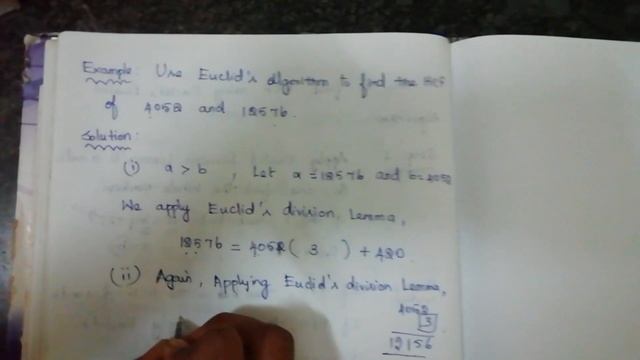 Example: Use Euclid's algorithm to find the HCF
of 4052 and 12576.
Solution:
(i) a > b , Let a = 12576 and b = 4052
We apply Euclid's division Lemma,
12576 = 4052 ( 3 ) + 420
(ii) Again, Applying Euclid's division Lemma,
4052
3
12156